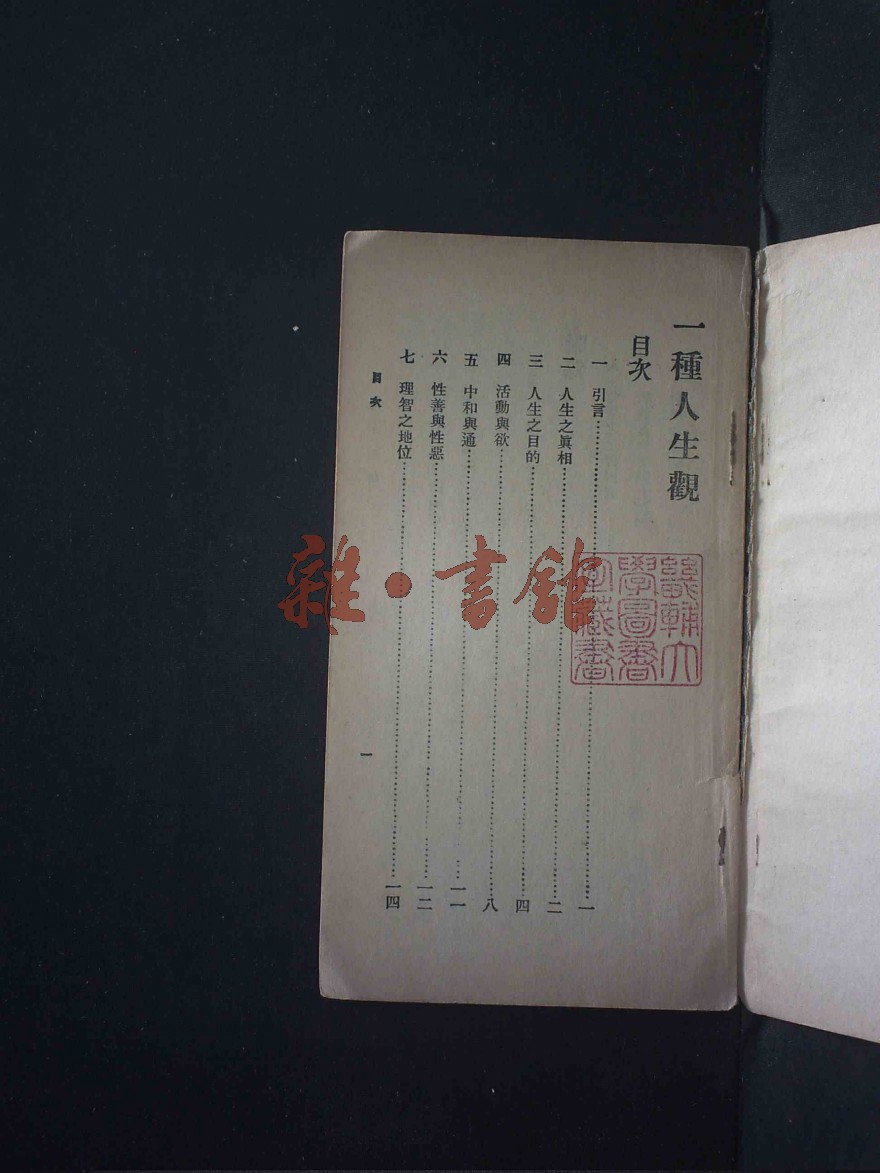 一種人生觀
目次
一 引言……一
二 人生之眞相……二
三 人生之目的……四
四 活動與欲……八
五 中和與通……一一
六 性善與性惡……一二
七 理智之地位……一四
目次
一
畿輔大
學圖書
館藏書
雜·書館